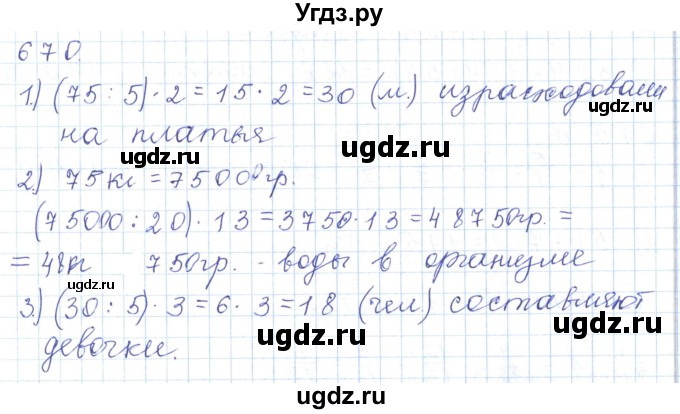 Угдз.ру
670.
1) (75 : 5) · 2 = 15 · 2 = 30 (м) израсходовали
ugdz.ru
на платья
ugdz.ru
ugdz.ru
2) 75кг = 75000гр.
ugdz.ru
(75000 : 20) · 13 = 3750 · 13 = 48750гр. =
= 48кг 750гр. - воды в организме
ugdz.ru
ugdz.ru
3) (30 : 5) · 3 = 6 · 3 = 18 (чел) составляют
ugdz.ru
девочки.
ugdz.ru
ugdz.ru